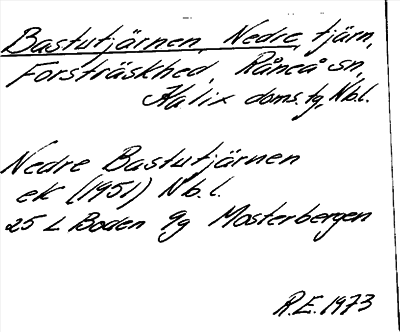 Bastutjärnen, Nedre, tjärn,
Forsträskhed, Råneå sn,
Kalix doms. tg, Nb.l.
Nedre Bastutjärnen
ek (1951) Nb.l.
25 L Boden 9g Mosterbergen
R.E. 1973